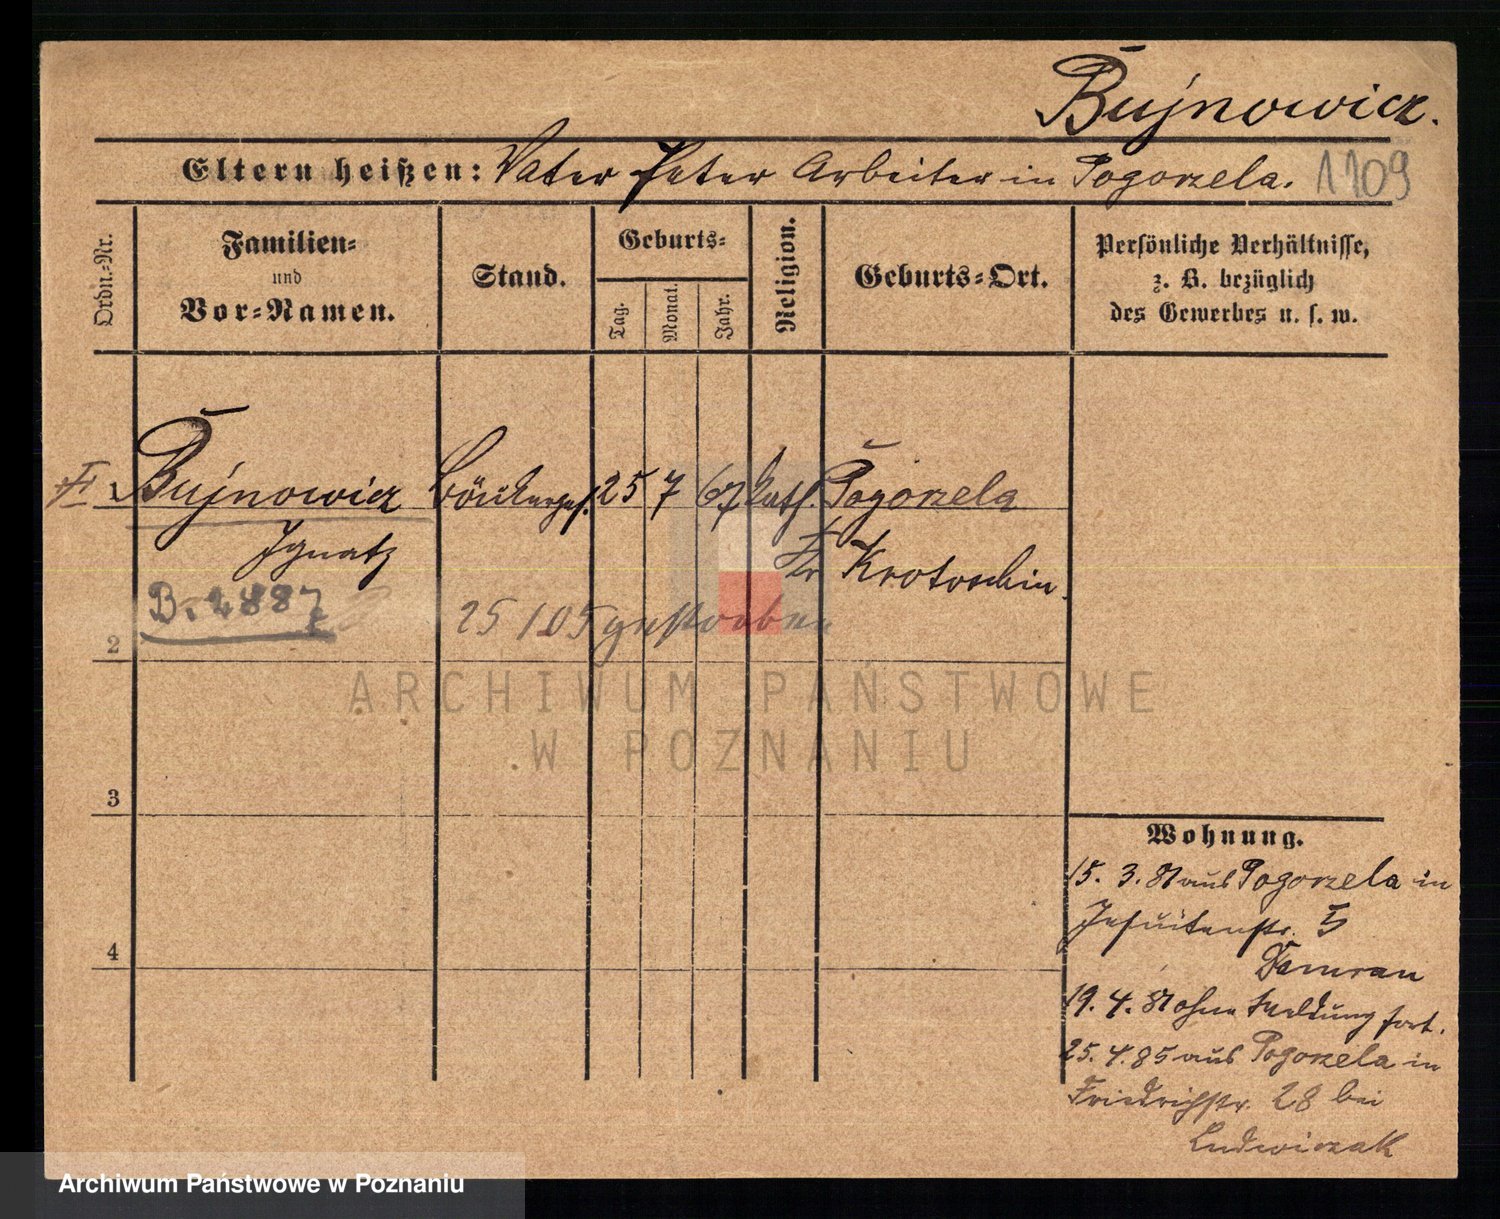 Bujnowicz.
Eltern heißen: Vater Peter Arbeiter in Pogorzela. 1109
Ordn.-Nr.
Familien-
und
Vor-Namen.
Stand.
Geburts-
Tag.
Monat.
Jahr.
Religion.
Geburts-Ort.
Persönliche Verhältnisse,
z. B. bezüglich
des Gewerbes u. s. w.
1 Bujnowicz Böttcherges. 25 7 67 kath. Pogorzela
Ignatz Kr Krotoschin.
B. 2887
25/105 gestorben
2
3
4
Wohnung.
15. 3. 81 aus Pogorzela in
Jesuitenstr. 5
19. 4. 81 ohne Meldung fort.
25. 4. 85 aus Pogorzela in
Friedrichstr. 28 bei
Ludwiczak
ARCHIWUM PAŃSTWOWE
W POZNANIU
Archiwum Państwowe w Poznaniu